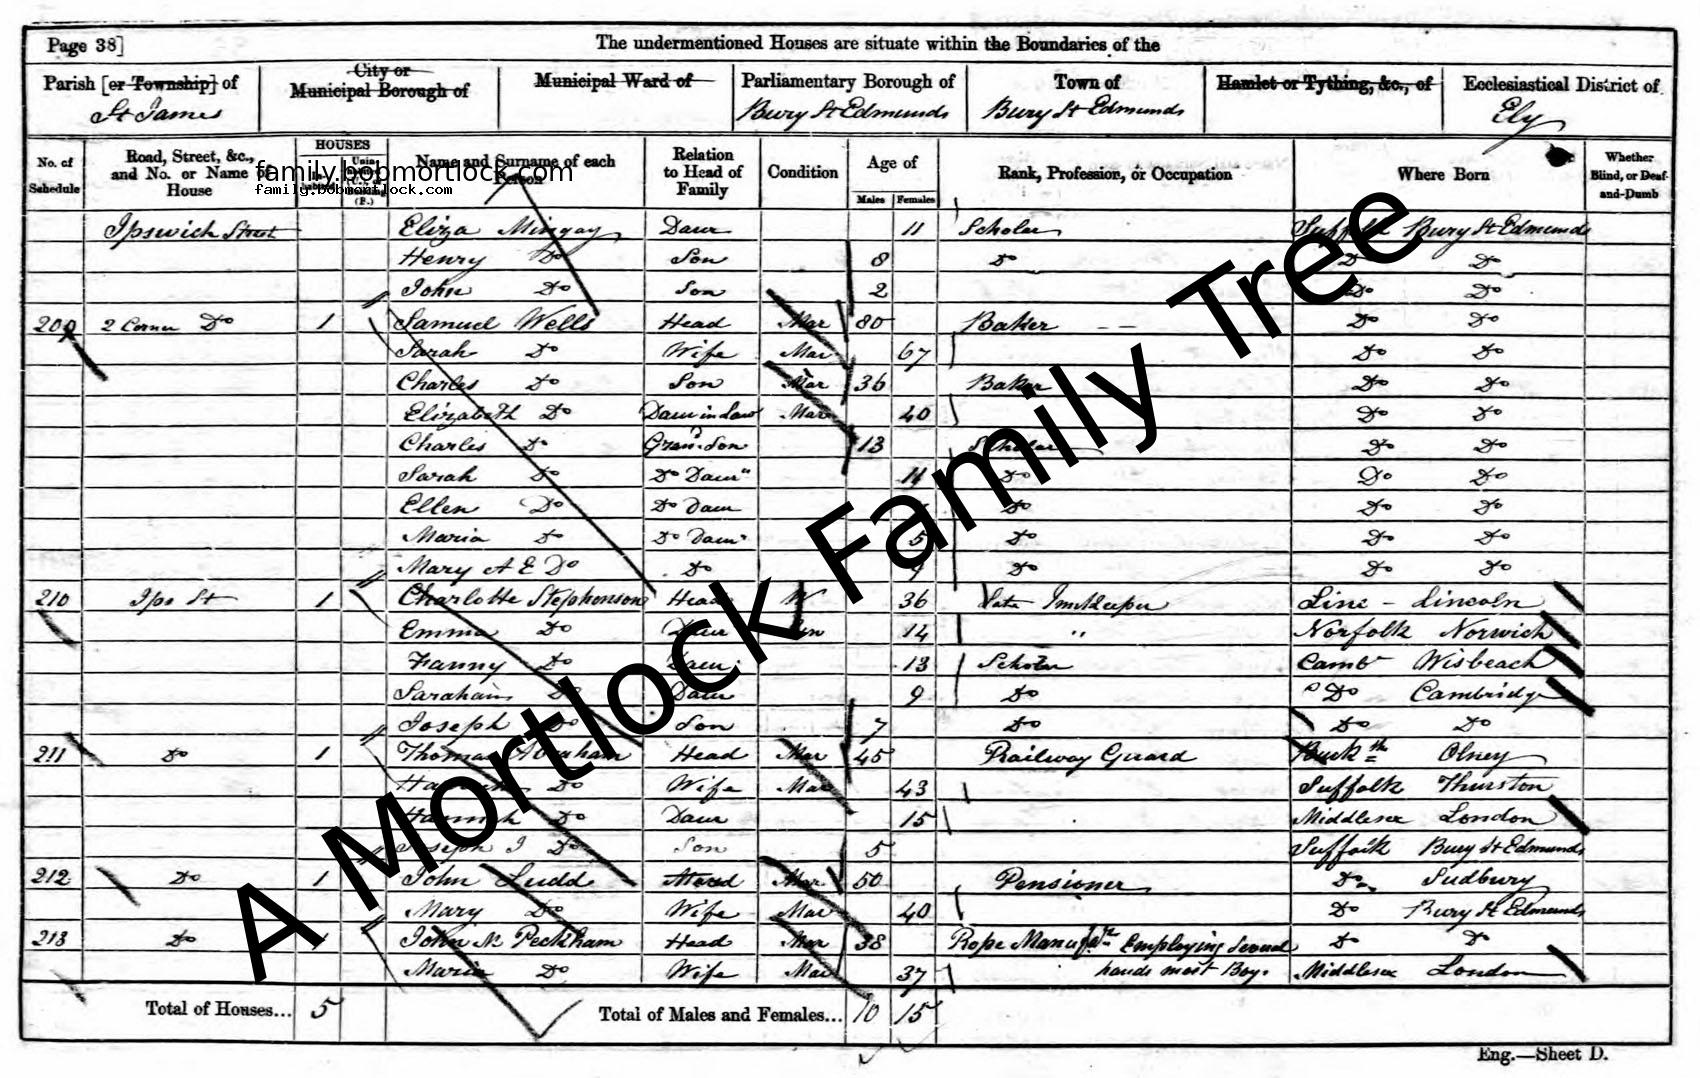 Page 38]
The undermentioned Houses are situate within the Boundaries of the
Parish [or Township] of St James
City or Municipal Borough of
Municipal Ward of
Parliamentary Borough of Bury St Edmunds
Town of Bury St Edmunds
Hamlet or Tything, &c., of
Ecclesiastical District of Ely
No. of Schedule
Road, Street, &c., and No. or Name of House
HOUSES
Name and Surname of each Person
Relation to Head of Family
Condition
Age of
Males
Females
Rank, Profession, or Occupation
Where Born
Whether Blind, or Deaf-and-Dumb
family.bobmortlock.com
family.bobmortlock.com
Ipswich Street Eliza Mingay Daur 11 Scholar Suffolk Bury St Edmunds
Henry Do Son 8 Do Do Do
John Do Son 2 Do Do
209 2 Corner Do 1 Samuel Wells Head Mar 80 Baker Do Do
Sarah Do Wife Mar 67 Do Do
Charles Do Son Mar 36 Baker Do Do
Elizabeth Do Daur in Law Mar 40 Do Do
Charles Do Gran. Son 13 Scholar Do Do
Sarah Do Do Daur 11 Do Do Do
Ellen Do Do Daur Do Do Do
Maria Do Do Daur 5 Do Do Do
Mary A E Do Do Do Do Do
210 Ips St 1 Charlotte Stephenson Head W 36 Late Innkeeper Linc - Lincoln
Emma Do Daur Un 14 " Norfolk Norwich
Fanny Do Daur 13 Scholar Camb Wisbeach
Do Daur 9 Do Do Cambridge
Joseph Do Son 7 Do Do Do
211 Do 1 Thomas Abraham Head Mar 45 Railway Guard Buck Olney
Do Wife Mar 43 Suffolk Thurston
Hannah Do Daur 15 Middlesex London
Joseph J Do Son 5 Suffolk Bury St Edmunds
212 Do 1 John Ludd Head Mar 50 Pensioner Do Sudbury
Mary Do Wife Mar 40 Do Bury St Edmunds
213 Do 1 John N Peckham Head Mar 38 Rope Manufr Employing Several Do Do
Maria Do Wife Mar 37 hands most Boys Middlesex London
Total of Houses... 5
Total of Males and Females... 10 15
Eng.—Sheet D.
A Mortlock Family Tree